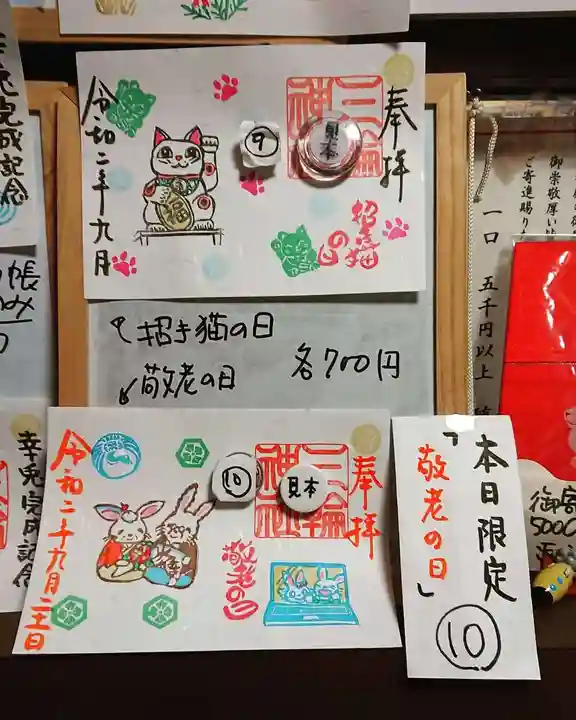 奉拝
三輪
神社
見本
⑨
招き猫
の日
福
令和二年九月
招き猫の日
敬老の日
各700円
奉拝
三輪
禮社
見本
⑩
敬老の日
令和二年九月二十一日
本日限定
「敬老の日」
⑩
幸兎完成記念
幸兎完成記念
帳
のみ
御崇敬厚い
ご寄進賜り
一口 五千円以上
5000